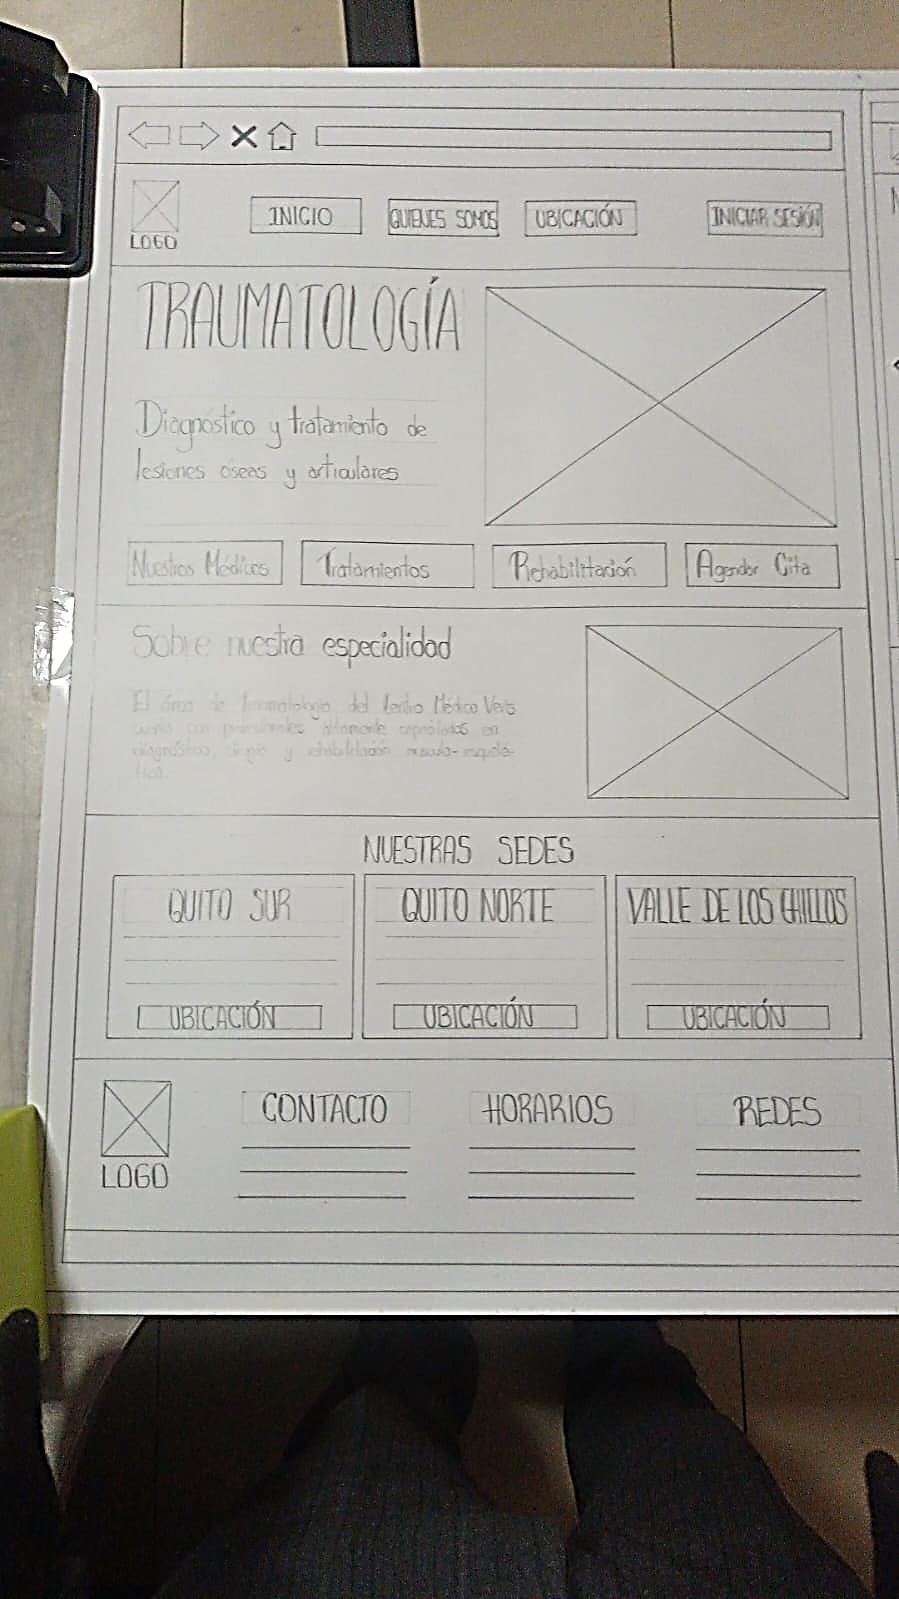 INICIO
QUIENES SOMOS
UBICACIÓN
INICIAR SESIÓN
LOGO
TRAUMATOLOGÍA
Diagnóstico y tratamiento de
lesiones óseas y articulares
Nuestros Médicos
Tratamientos
Rehabilitación
Agendar Cita
Sobre nuestra especialidad
El área de traumatología del Centro Médico Veris
cuenta con profesionales altamente capacitados en
diagnóstico, cirugía y rehabilitación musculo-esquelé-
tica.
NUESTRAS SEDES
QUITO SUR
QUITO NORTE
VALLE DE LOS CHILLOS
UBICACIÓN
UBICACIÓN
UBICACIÓN
CONTACTO
HORARIOS
REDES
LOGO